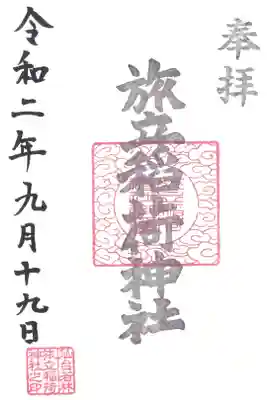 奉拝
旅立稲荷神社
令和二年九月十九日